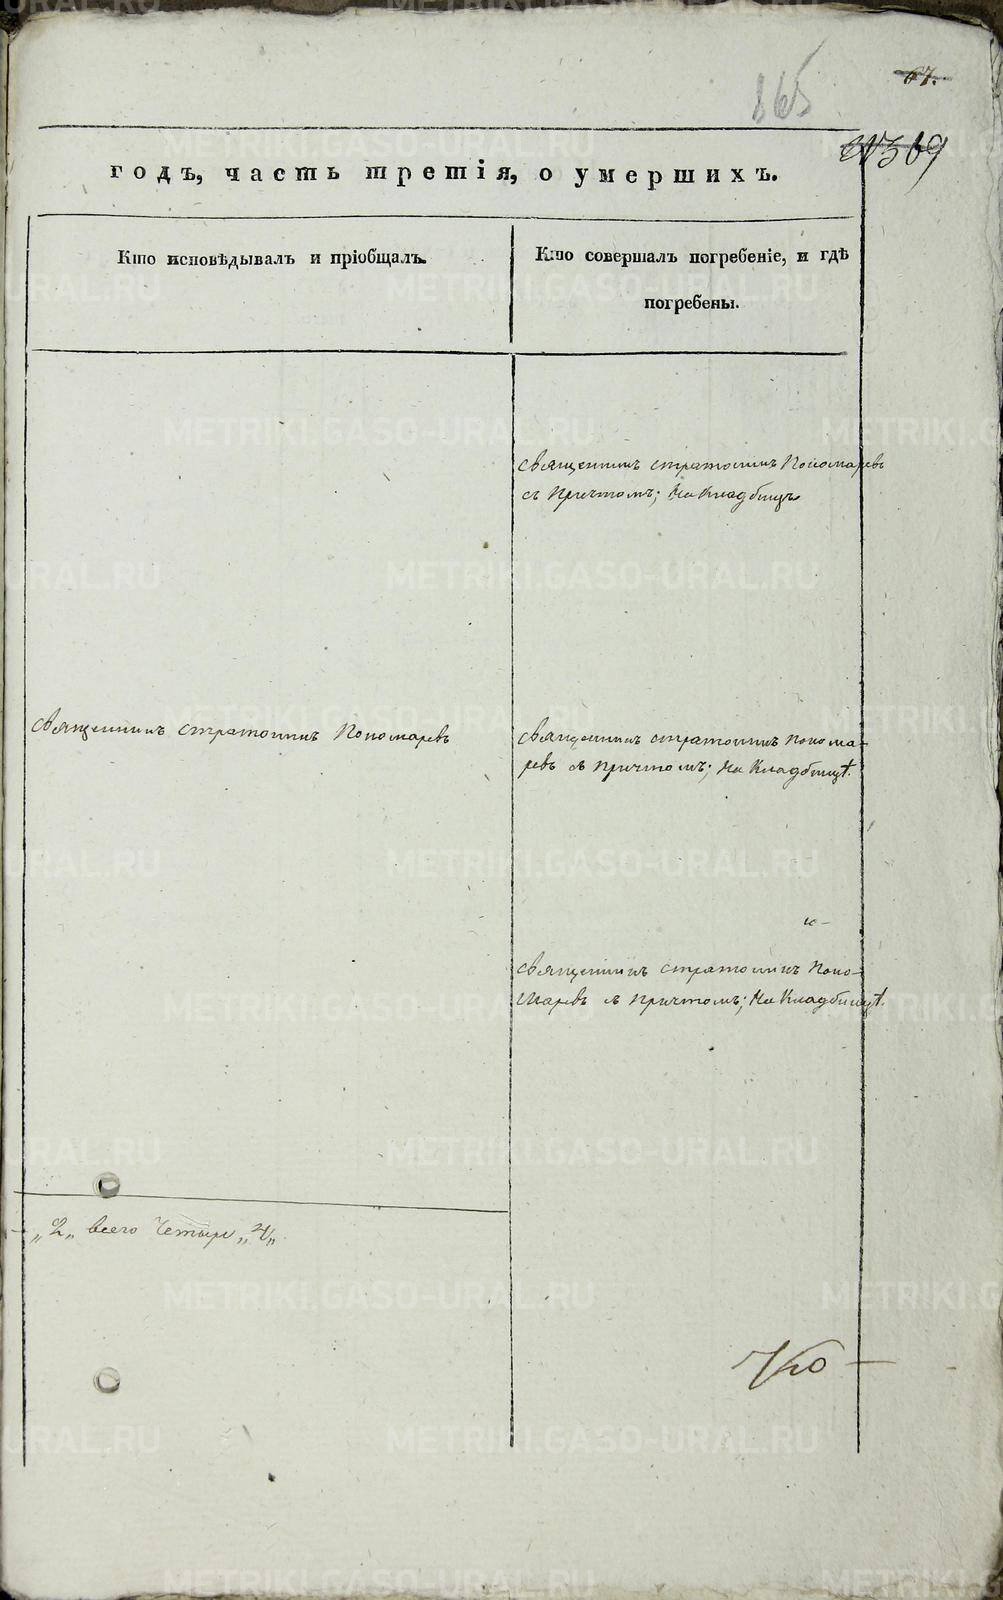 67.
165
№ 369
годъ, часть третія, о умершихъ.
Кто исповѣдывалъ и пріобщалъ.
Кто совершалъ погребеніе, и гдѣ
погребены.
Священникъ Стратоникъ Пономаревъ
съ Причтомъ; На Кладбищѣ
Священникъ Стратоникъ Пономаревъ
Священникъ Стратоникъ Понома-
ревъ съ Причтомъ; На Кладбищѣ.
и-
Священникъ Стратоникъ Поно-
Маревъ съ Причтомъ; На Кладбищѣ.
„2„ всего Четыре „4„
METRIKI.GASO-URAL.RU